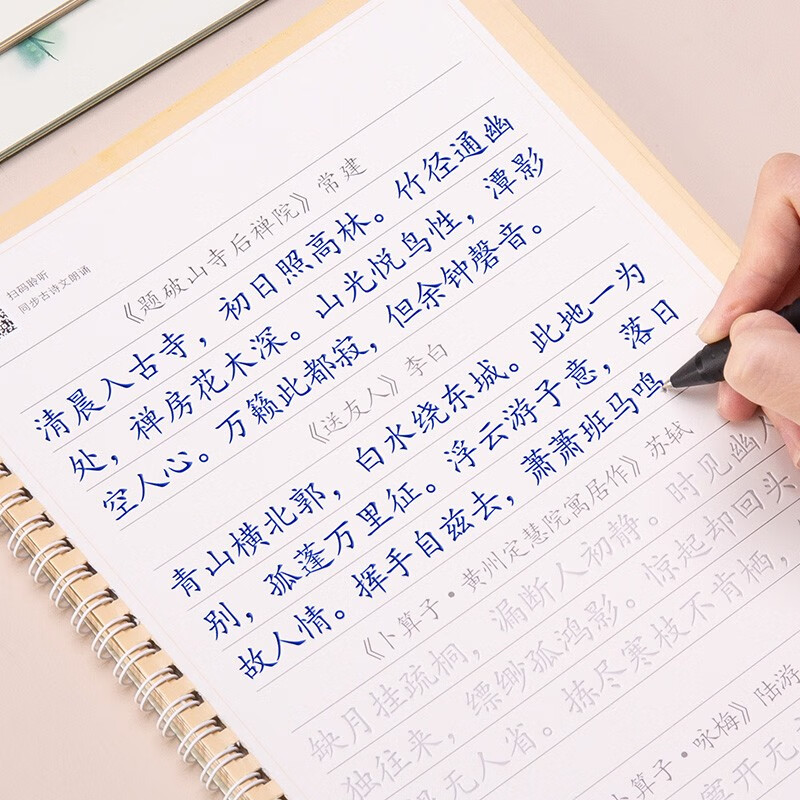 扫码聆听
同步古诗文朗诵
《题破山寺后禅院》常建
清晨入古寺，初日照高林。竹径通幽
处，禅房花木深。山光悦鸟性，潭影
空人心。万籁此都寂，但余钟磬音。
《送友人》李白
青山横北郭，白水绕东城。此地一为
别，孤蓬万里征。浮云游子意，落日
故人情。挥手自兹去，萧萧班马鸣
《卜算子·黄州定慧院寓居作》苏轼
缺月挂疏桐，漏断人初静。时见幽人
独往来，缥缈孤鸿影。惊起却回头，
无人省。拣尽寒枝不肯栖，
卜算子·咏梅》陆游
开无